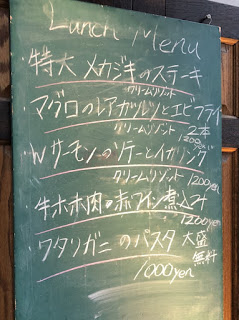 Lunch Menu
特大 メカジキのステーキ
クリームリゾット
マグロのレアカツレツとエビフライ
クリームリゾット 2本
1200yen
Wサーモンのソテーとイカリング
クリームリゾット 1200yen
牛ホホ肉の赤ワイン煮込み
1200yen
ワタリガニのパスタ 大盛
無料
1000yen